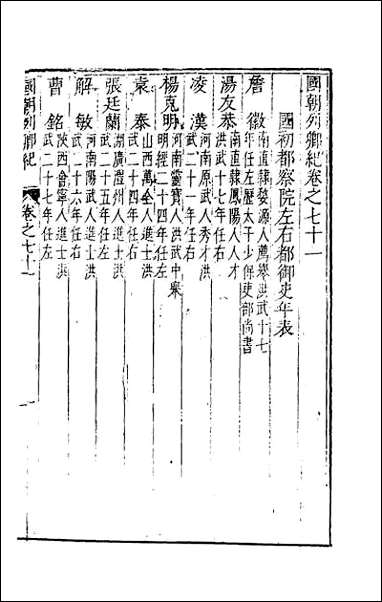 國朝列卿紀卷之七十一
國初都察院左右都御史年表
詹徽
南直隸婺源人薦舉洪武十七
年任左歷太子少保吏部尚書
湯友恭
南直隸鳳陽人人才
洪武十七年任右
凌漢
河南原武人秀才洪
武二十一年任右
楊克明
河南靈寶人洪武中舉
明經二十四年任左
袁泰
山西萬全人進士洪
武二十四年任右
張廷蘭
湖廣澧州人進士洪
武二十五年任左
解敏
河南陽武人進士洪
武二十六年任右
曹銘
陝西會寧人進士洪
武二十七年任左
國朝列卿紀
卷之七十一